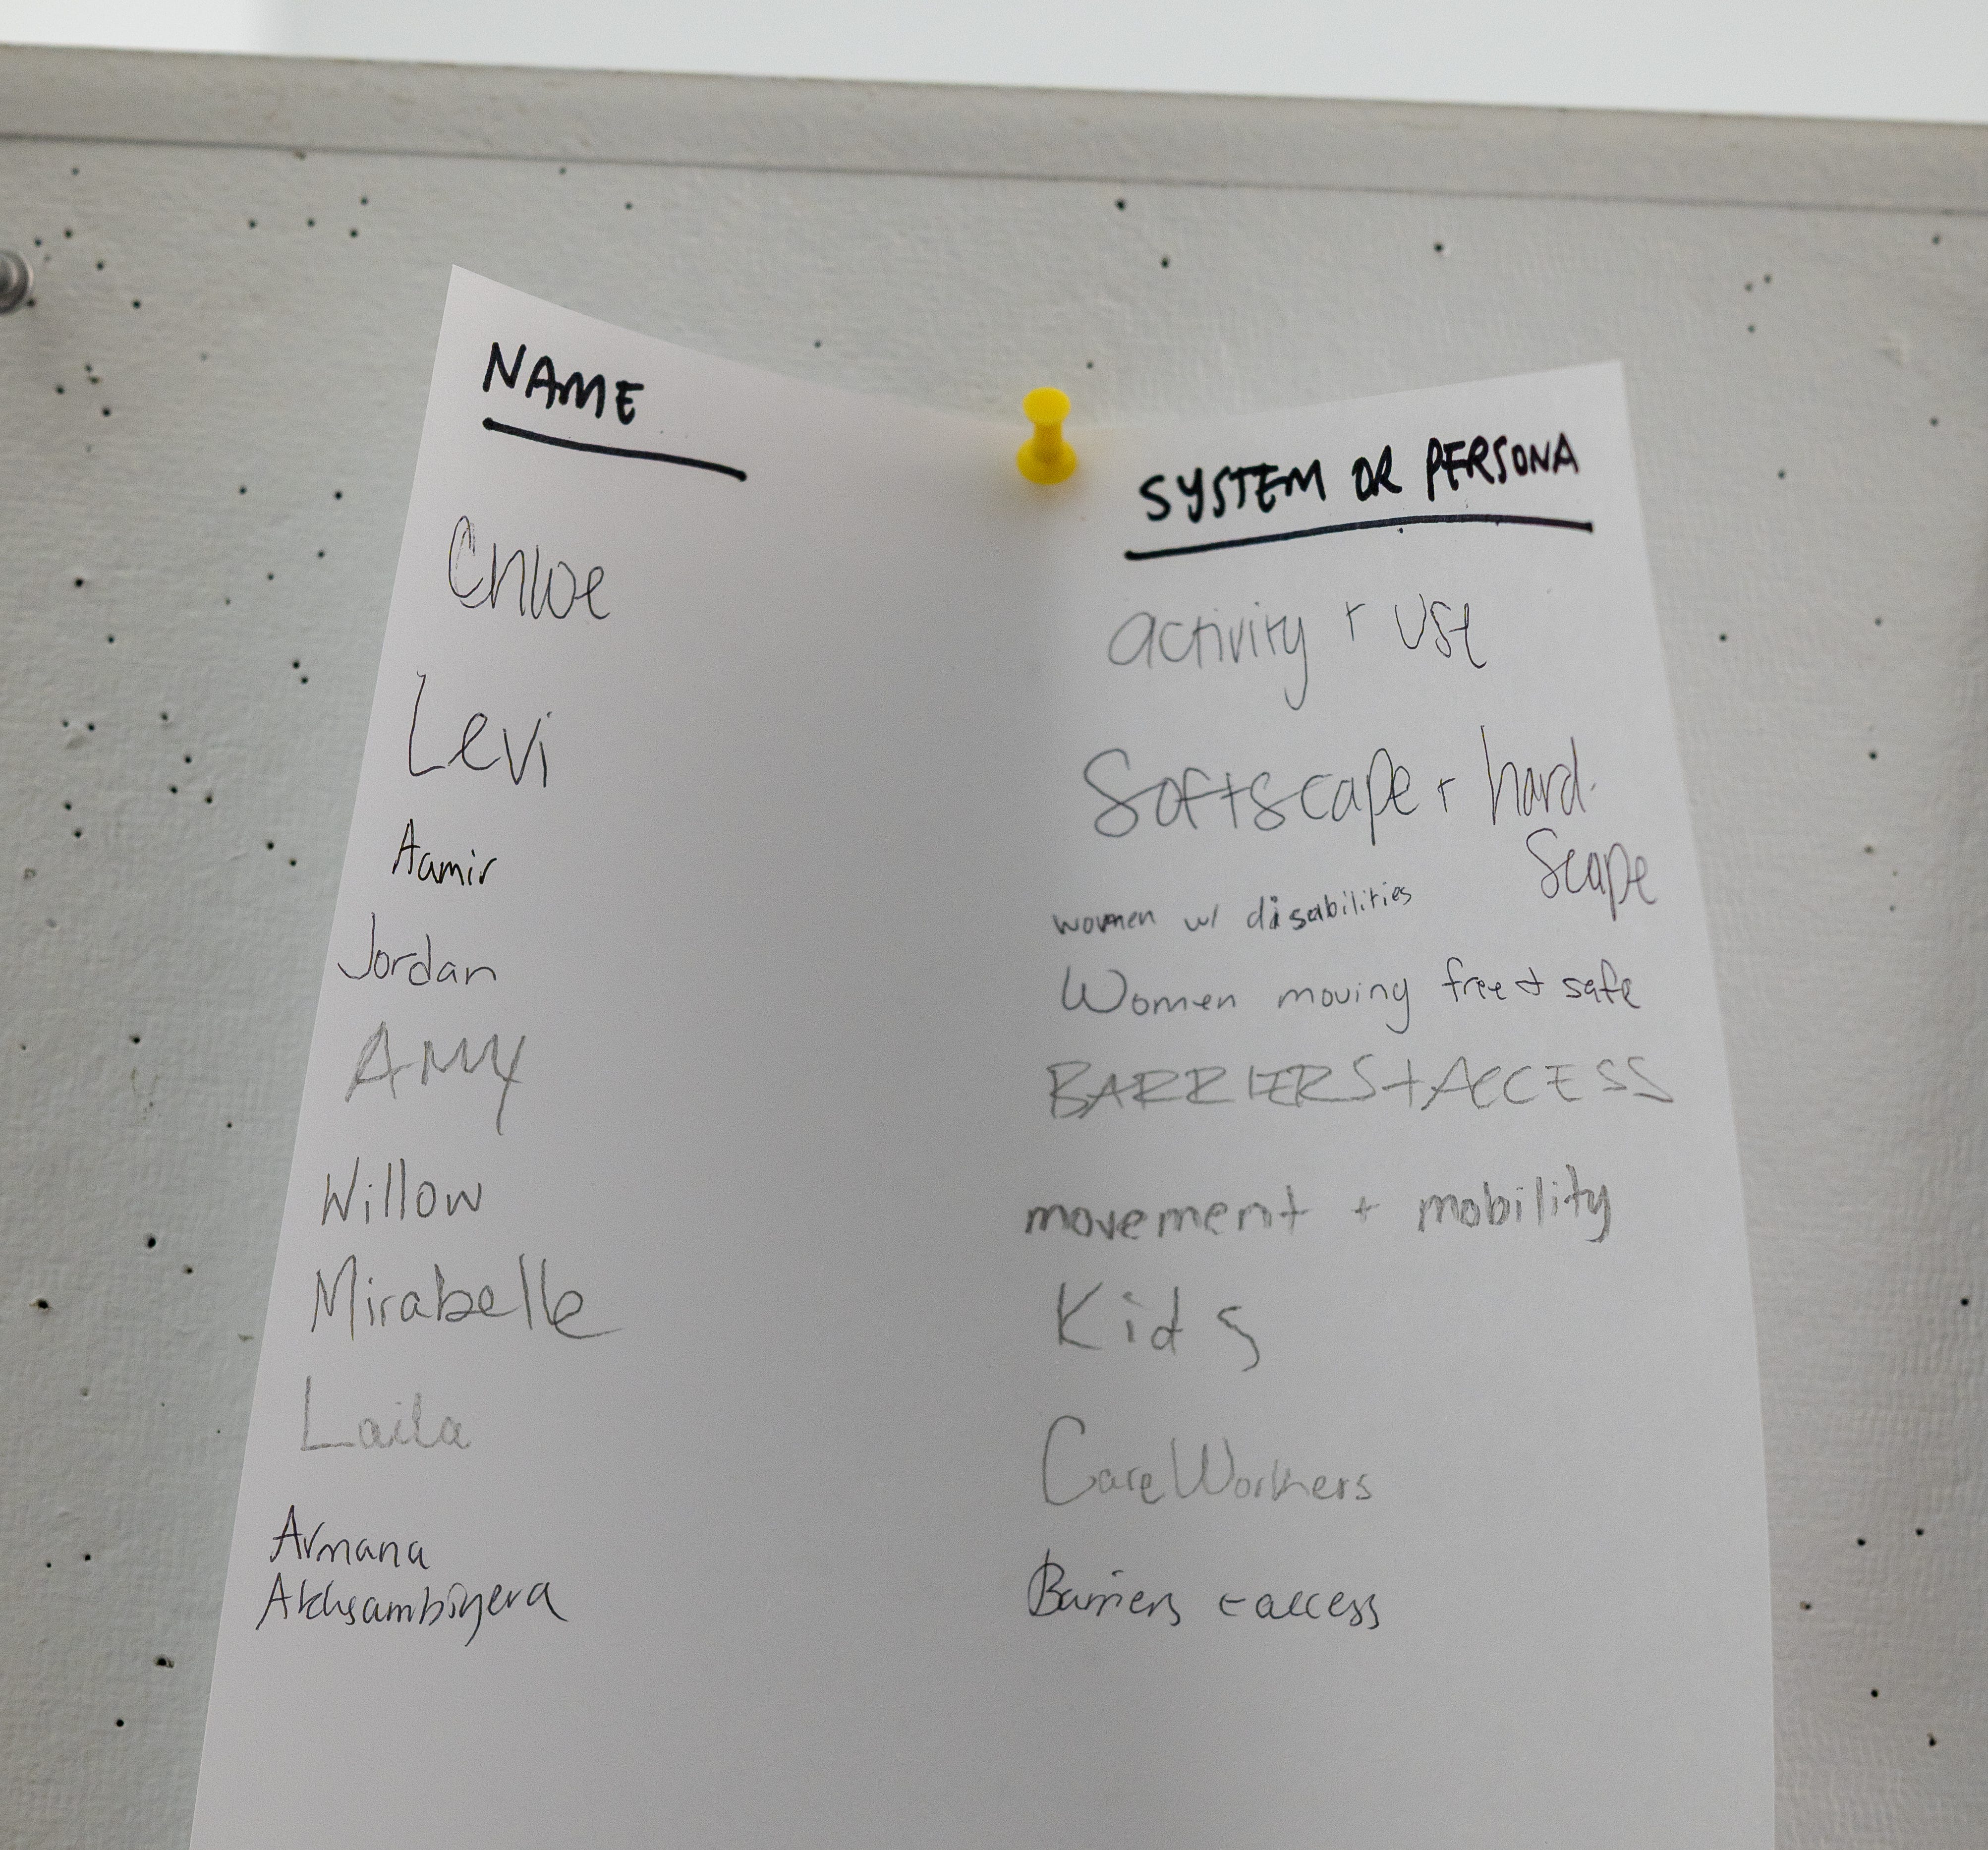 NAME
SYSTEM OR PERSONA
Chloe
activity + use
Levi
Softscape + hard-
Scape
Aamir
women w/ disabilities
Jordan
Women moving free + safe
AMY
BARRIERS + ACCESS
Willow
movement + mobility
Mirabelle
Kids
Laila
Care Workers
Armana
Barriers + access